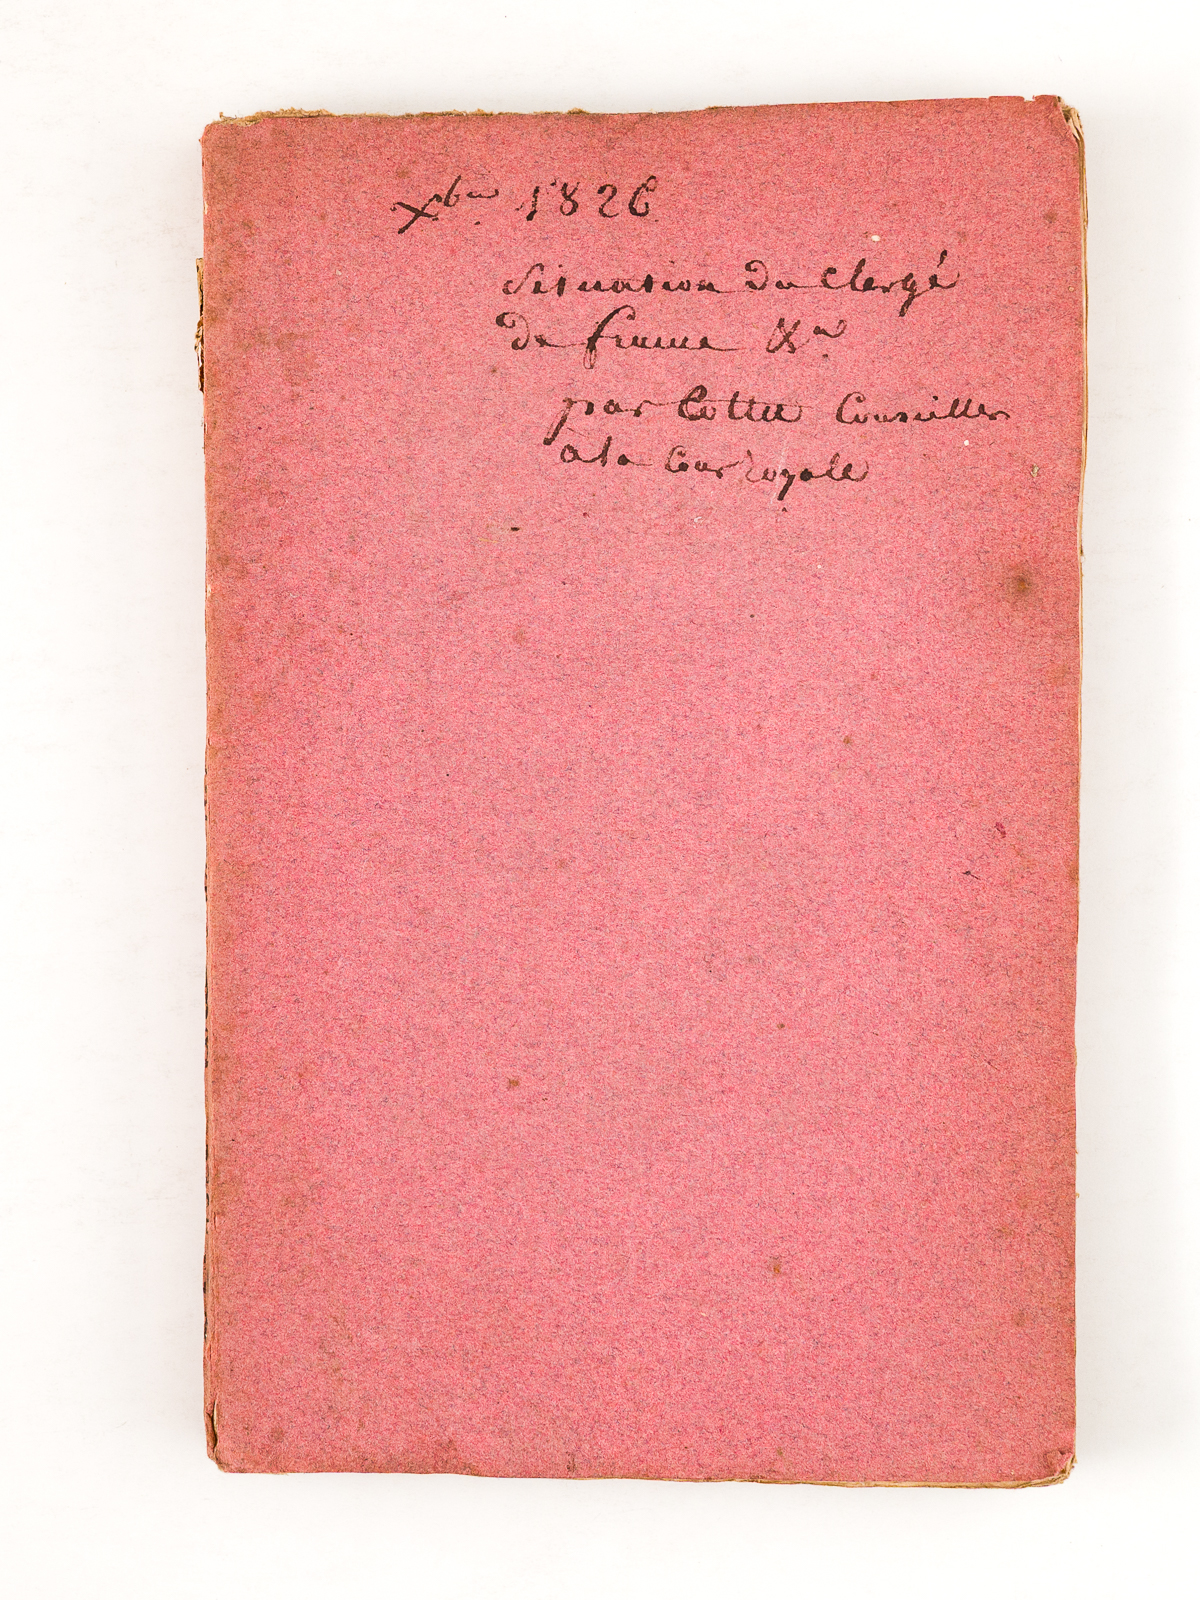 Xbre 1826
Situation du Clergé
de france &a
par Cottu Conseiller
a la Cour royale